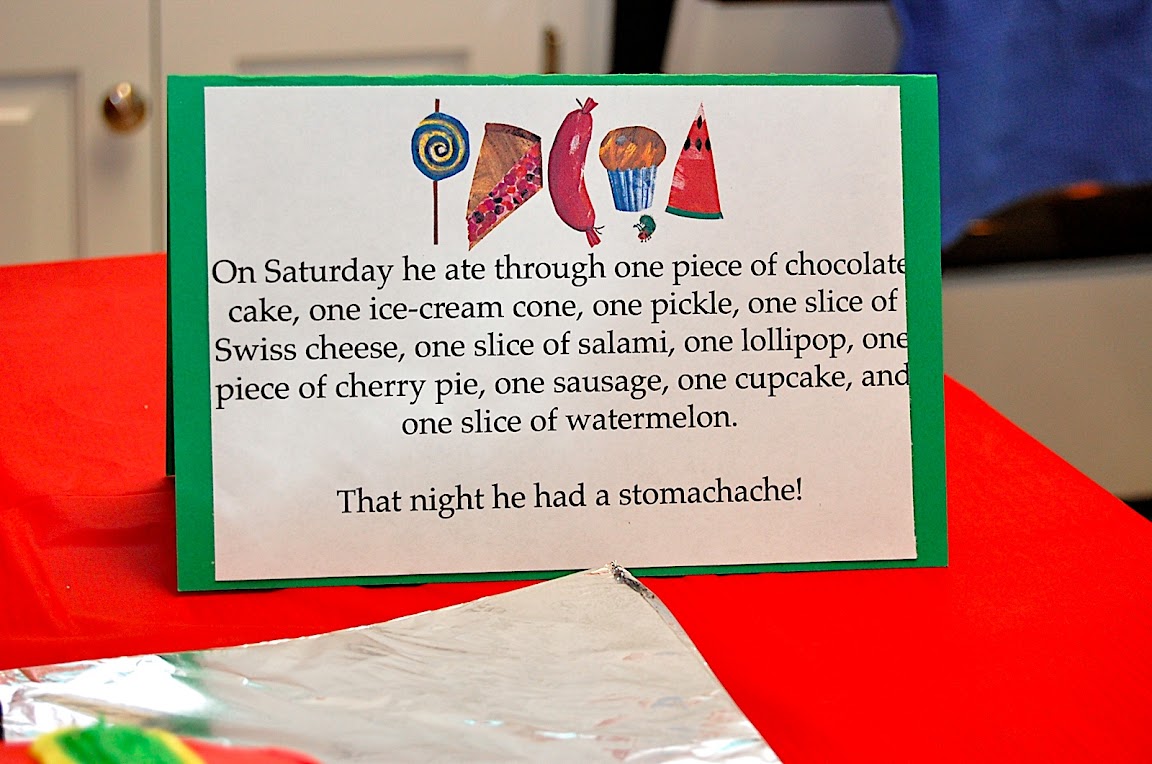 On Saturday he ate through one piece of chocolate
cake, one ice-cream cone, one pickle, one slice of
Swiss cheese, one slice of salami, one lollipop, one
piece of cherry pie, one sausage, one cupcake, and
one slice of watermelon.
That night he had a stomachache!